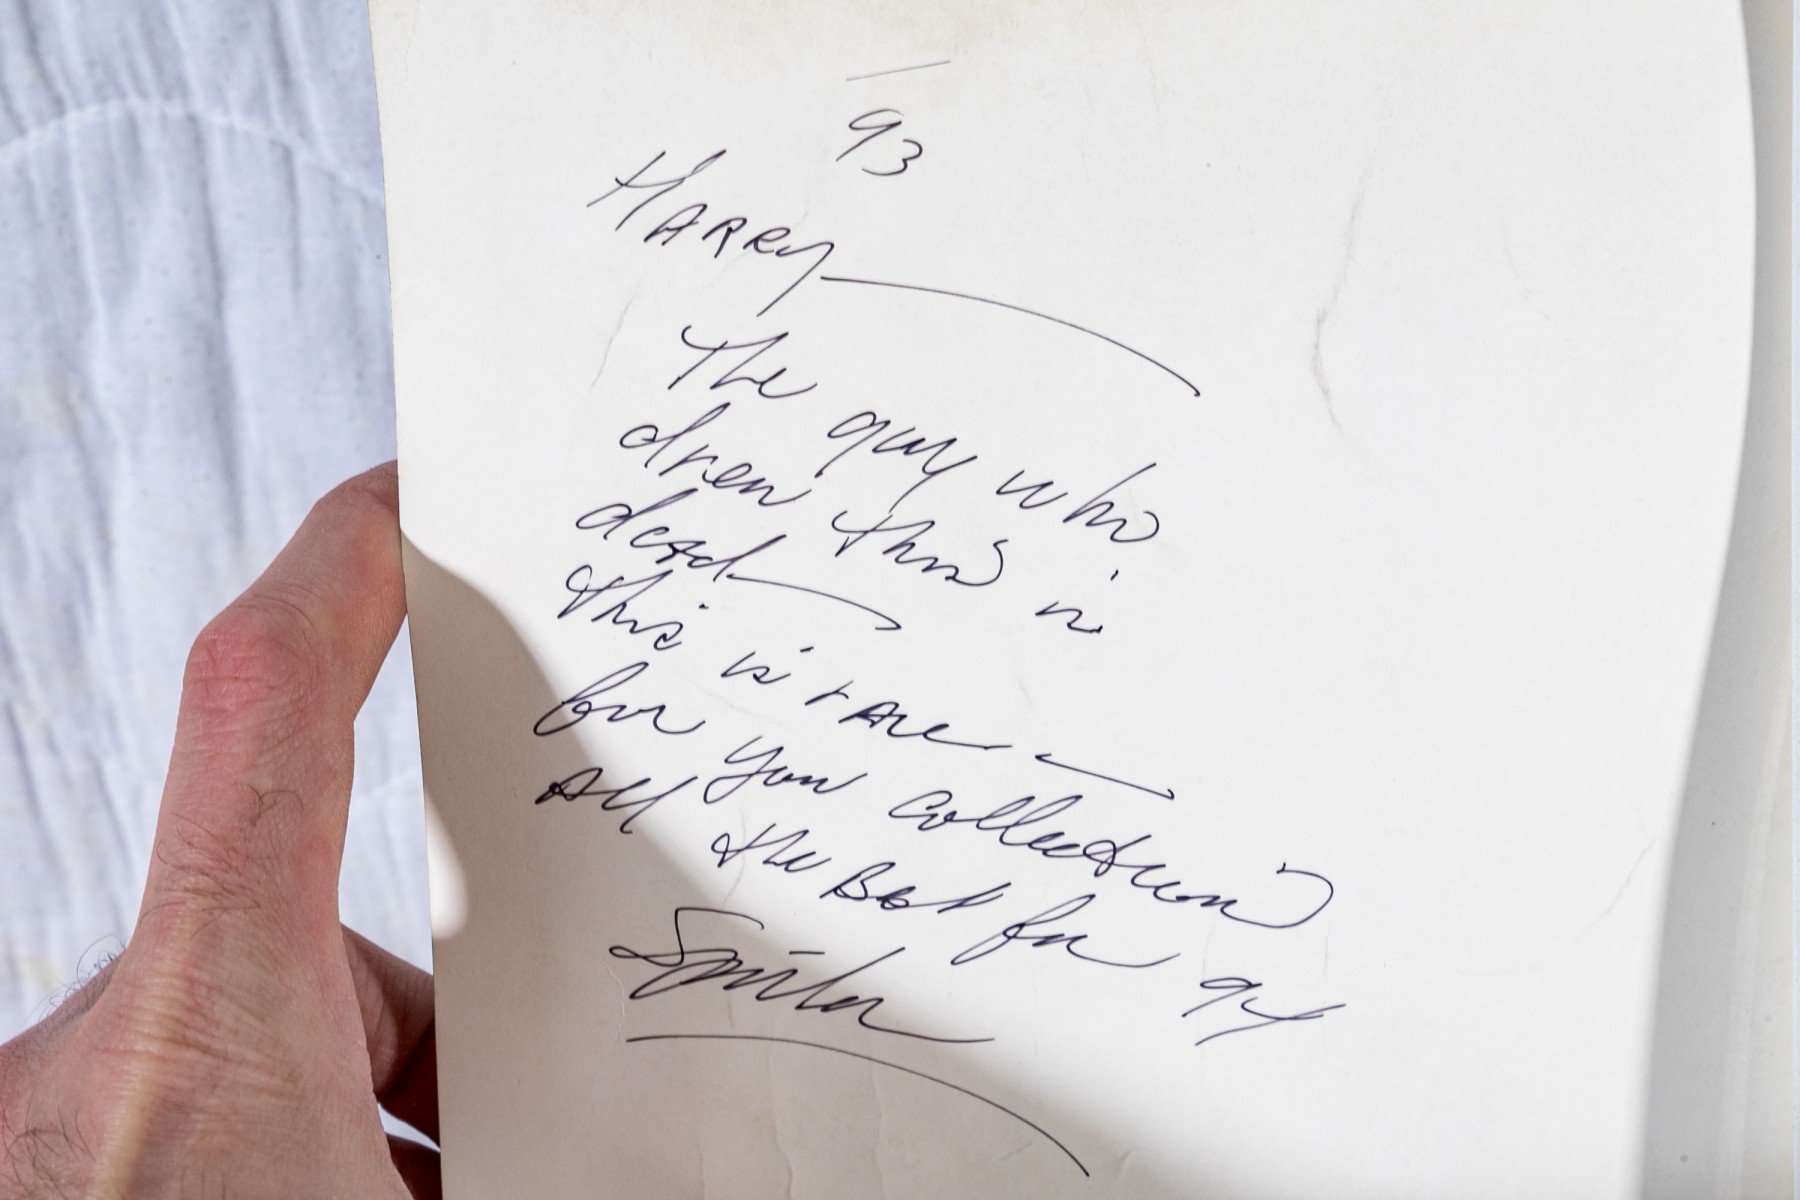 93
HARRy
The guy who
drew this is
dead
This is rare
for you collection
All the Best for 94